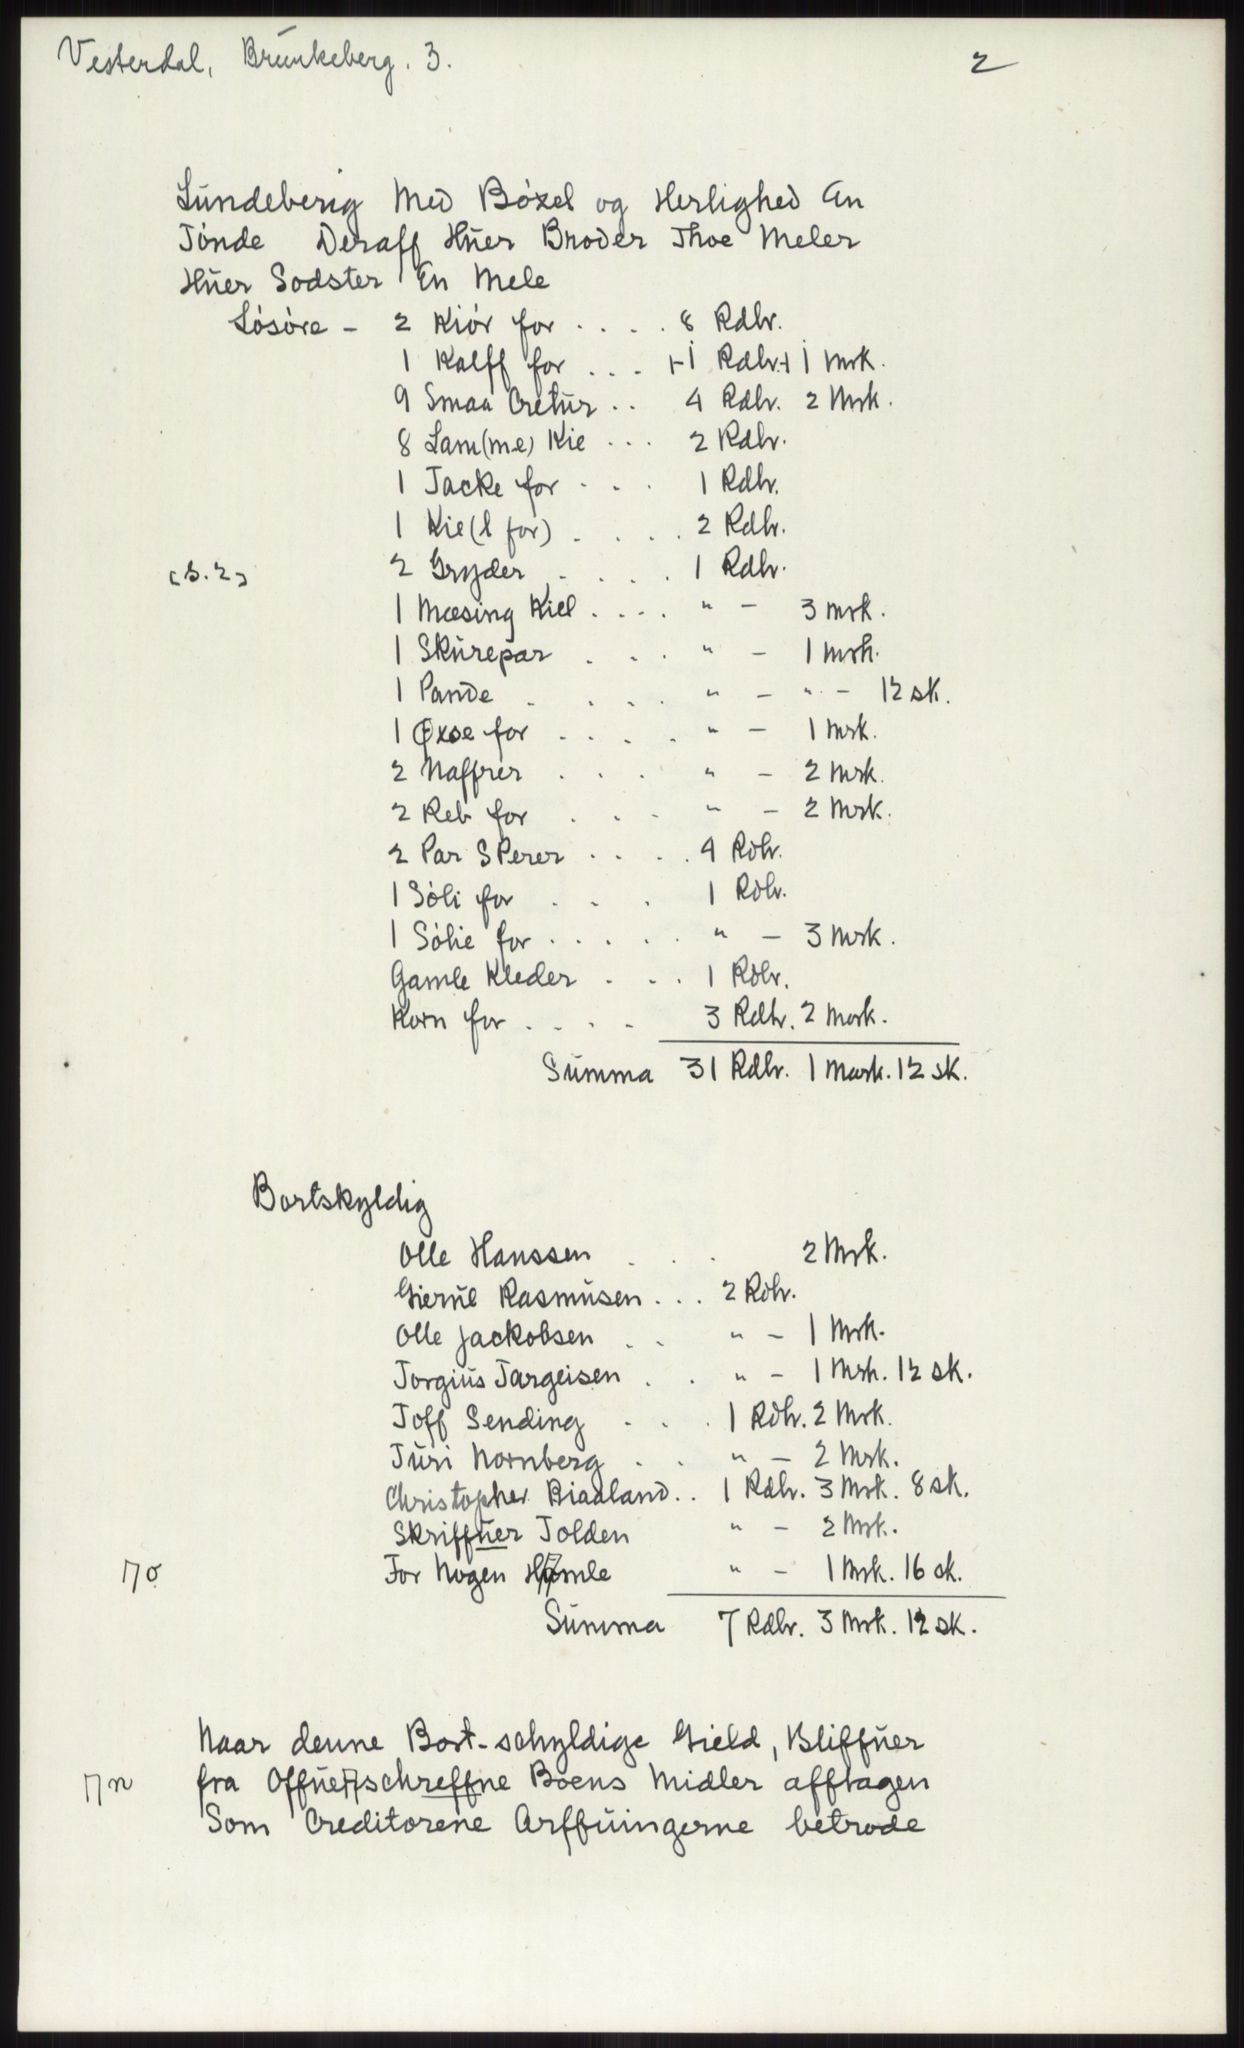 Vesterdal, Brunkeberg. 3. 2
Lundeberig Med Bóxel og Herlighed En
Tónde Deraff Huer Broder Thoe Meler
Huer Sodster En Mele
Lósóre - 2 Kiór for . . . . 8 Rdlr.
1 Kalff for . . . +1 Rdlr.+ 1 mrk.
9 Smaa Cretur . . 4 Rdlr. 2 Mrk.
8 Lam(me) Kie . . . 2 Rdlr.
1 Jacke for . . . 1 Rdlr.
1 Kie(l for) . . . . 2 Rdlr.
[s.2] 2 Gryder . . . . 1 Rdlr.
1 Mæsing Kiel . . . . " - 3 mrk.
1 Skurepar . . . " - 1 mrk.
1 Pande . . . . " - " - 12 sk.
1 Øxse for . . . . " - 1 mrk.
2 Naffrer . . . " - 2 mrk.
2 Reb for . . . " - 2 Mrk.
2 Par SPerer . . . . 4 Rdlr.
1 Sóli for . . . 1 Rdlr.
1 Sólie for . . . . . " - 3 Mrk.
Gamle Kleder . . . 1 Rdlr.
Korn for . . . . 3 Rdlr. 2 Mark.
Summa 31 Rdlr. 1 Mark. 12 sk.
Bortskyldig
Olle Hanssen . . . 2 Mrk.
Gierul Rasmusen . . . 2 Rdlr.
Olle Jackobsen . . " - 1 Mrk.
Jorgius Targeisen . . " - 1 Mrk. 12 sk.
Toff Sending . . . 1 Rdlr. 2 Mrk.
Turi Nornberg . . " - 2 Mrk.
Christopher Biadland . . 1 Rdlr. 3 Mrk. 8 sk.
Skriffuer Tolden " - 2 Mrk.
For Nogen Homle " - 1 Mrk. 16 sk.
Summa 7 Rdlr. 3 Mrk. 12 sk.
Naar denne Bort-schyldige Gield, Bliffuer
fra Offuenschreffne Boens Midler afftagen
Som Creditorene Arffuingerne betrode